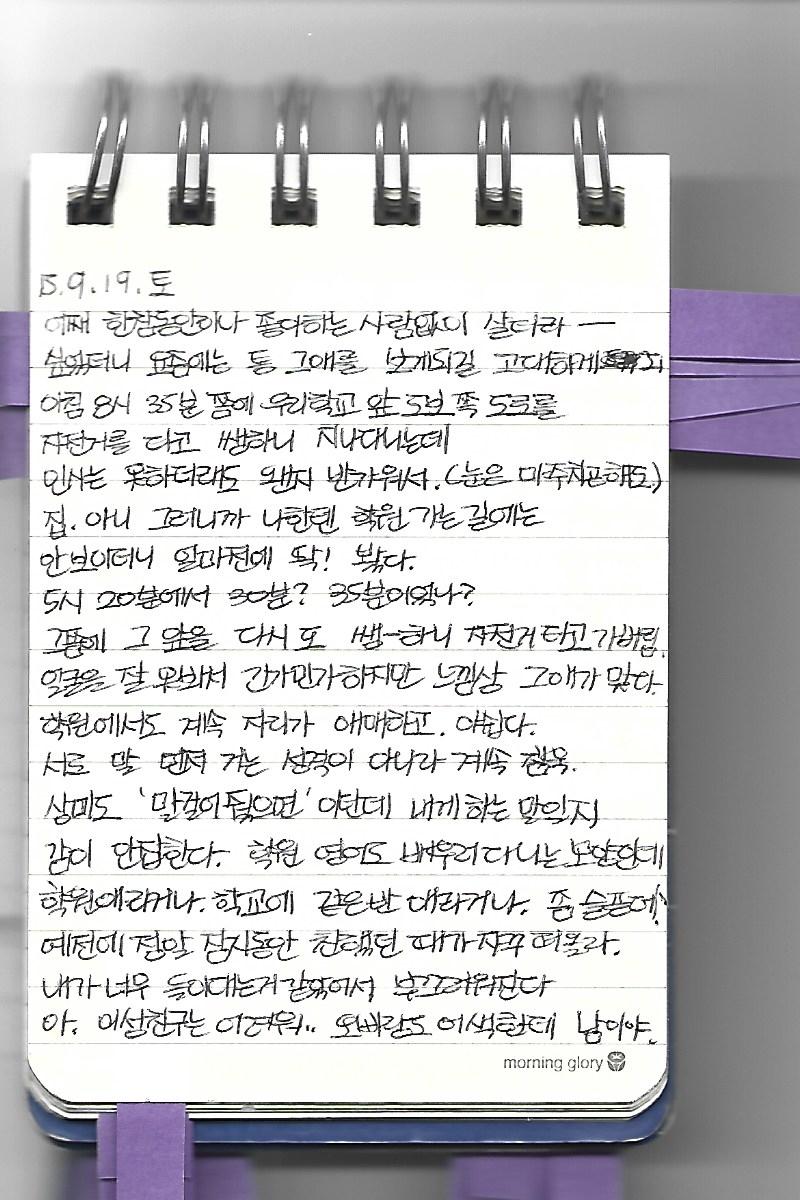 15.9.19.토
어째 한참동안이나 좋아하는 사람없이 살더라 —
싶었더니 요즘에는 통 그애를 보게되길 고대하게
아침 8시 35분 쯤에 우리학교 앞 도보 쪽 도로를
자전거를 타고 쌩하니 지나다니는데
인사는 못하더래도 왠지 반가워서. (눈은 마주치곤해도)
집. 아니 그러니까 나한텐 학원 가는 길에는
안보이더니 얼마전에 딱! 봤다.
5시 20분에서 30분? 35분이었나?
그쯤에 그 앞을 다시 또 쌩-하니 자전거타고가버림.
얼굴을 잘 못봐서 간가민가하지만 느낌상 그애가 맞다.
학원에서도 계속 자리가 애매하고. 아쉽다.
서로 말 먼저 거는 성격이 아니라 계속 침묵.
상미도 '말걸어줬으면' 이란데 내게 하는 말인지
감이 안잡힌다. 학원 영어도 배우러다니는 모양인데
학원애라거나. 학교에 같은반 애라거나. 좀 슬픔에
예전에 정말 잠시동안 친했던 때가 자꾸 떠올라.
내가 너무 들이대는거 같았어서 부끄러워진다
아. 이성친구는 어려워.. 오빠랑도 어색한데 남이야.
morning glory